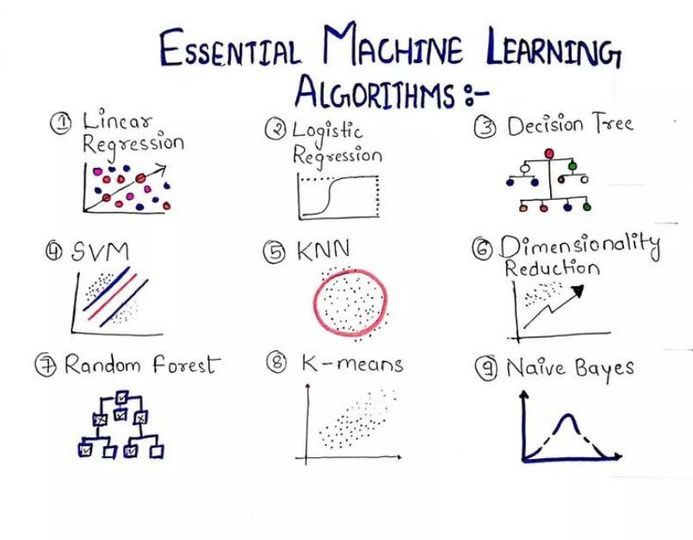 ESSENTIAL MACHINE LEARNING
ALGORITHMS :-
① Linear
Regression
② Logistic
Regression
③ Decision Tree
④ SVM
⑤ KNN
⑥ Dimensionality
Reduction
⑦ Random Forest
⑧ K-means
⑨ Naive Bayes